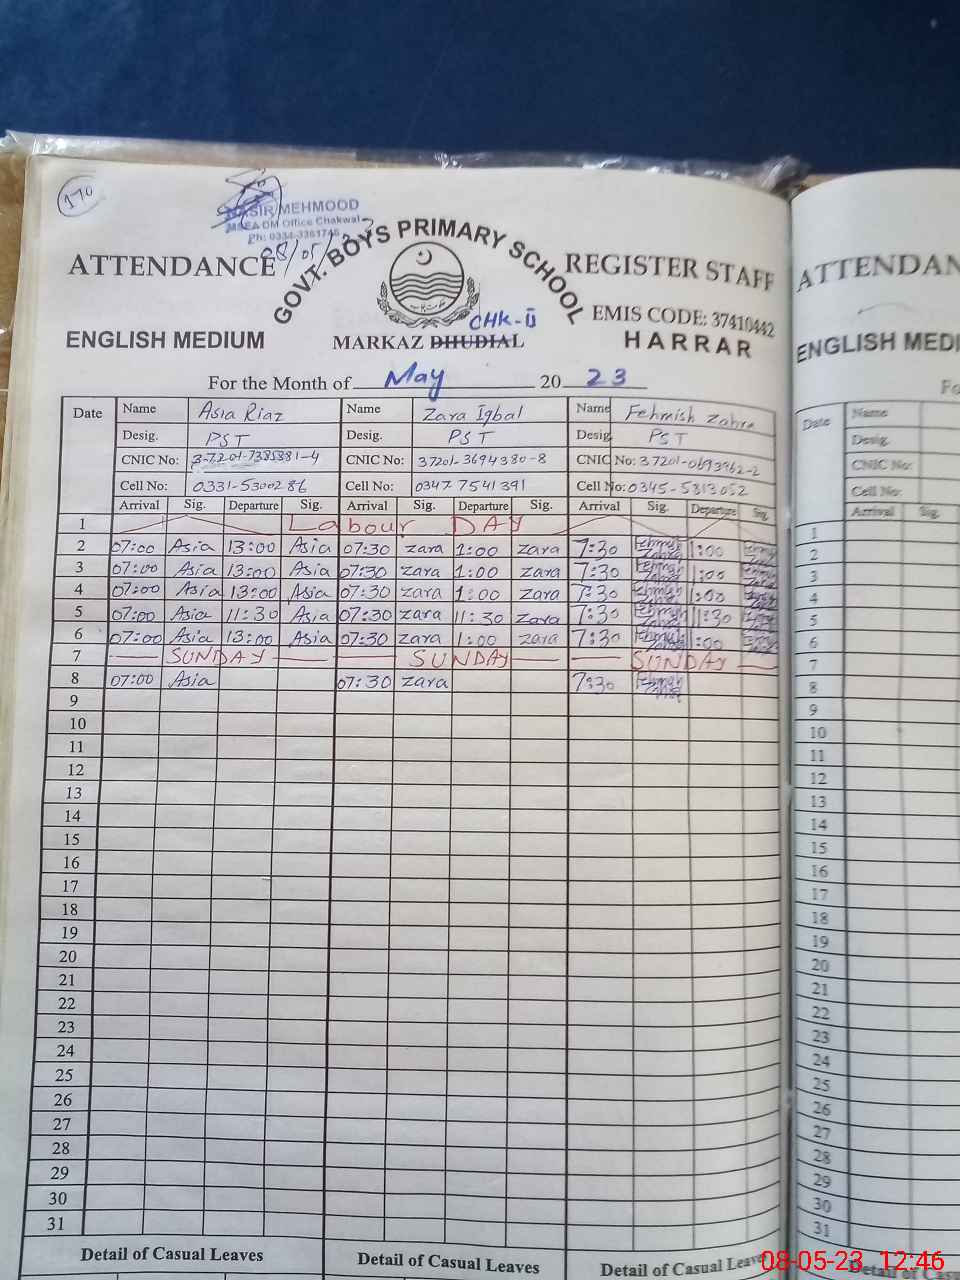 170
NASIR MEHMOOD
MEA DM Office Chakwal
Ph: 0334-3361746
08/05/
GOVT. BOYS PRIMARY SCHOOL
ATTENDANCE REGISTER STAFF
EMIS CODE: 37410442
CHK-II
ENGLISH MEDIUM MARKAZ DHUDIAL HARRAR
For the Month of May 2023
Date Name Asia Riaz Name Zara Iqbal Name Fehmish Zahra
Desig. PST Desig. PST Desig. PST
CNIC No: 37201-7385381-4 CNIC No: 37201-3694380-8 CNIC No: 37201-0693962-2
Cell No: 0331-5300286 Cell No: 0347 7541391 Cell No: 0345-5813052
Arrival Sig. Departure Sig. Arrival Sig. Departure Sig. Arrival Sig. Departure Sig.
1 Labour DAY
2 07:00 Asia 13:00 Asia 07:30 zara 1:00 zara 7:30 Fehmish Zahra 1:00
3 07:00 Asia 13:00 Asia 07:30 zara 1:00 zara 7:30 Fehmish Zahra 1:00
4 07:00 Asia 13:00 Asia 07:30 zara 1:00 zara 7:30 Fehmish Zahra 1:00
5 07:00 Asia 11:30 Asia 07:30 zara 11:30 zara 7:30 Fehmish Zahra 11:30
6 07:00 Asia 13:00 Asia 07:30 zara 1:00 zara 7:30 Fehmish Zahra 1:00
7 SUNDAY SUNDAY SUNDAY
8 07:00 Asia 07:30 zara 7:30 Fehmish Zahra
9
10
11
12
13
14
15
16
17
18
19
20
21
22
23
24
25
26
27
28
29
30
31
Detail of Casual Leaves Detail of Casual Leaves Detail of Casual Leaves
ATTENDAN
ENGLISH MEDI
Fo
Date Name
Desig.
CNIC No:
Cell No:
Arrival Sig.
1
2
3
4
5
6
7
8
9
10
11
12
13
14
15
16
17
18
19
20
21
22
23
24
25
26
27
28
29
30
31
Detail of Cas
08-05-23 12:46